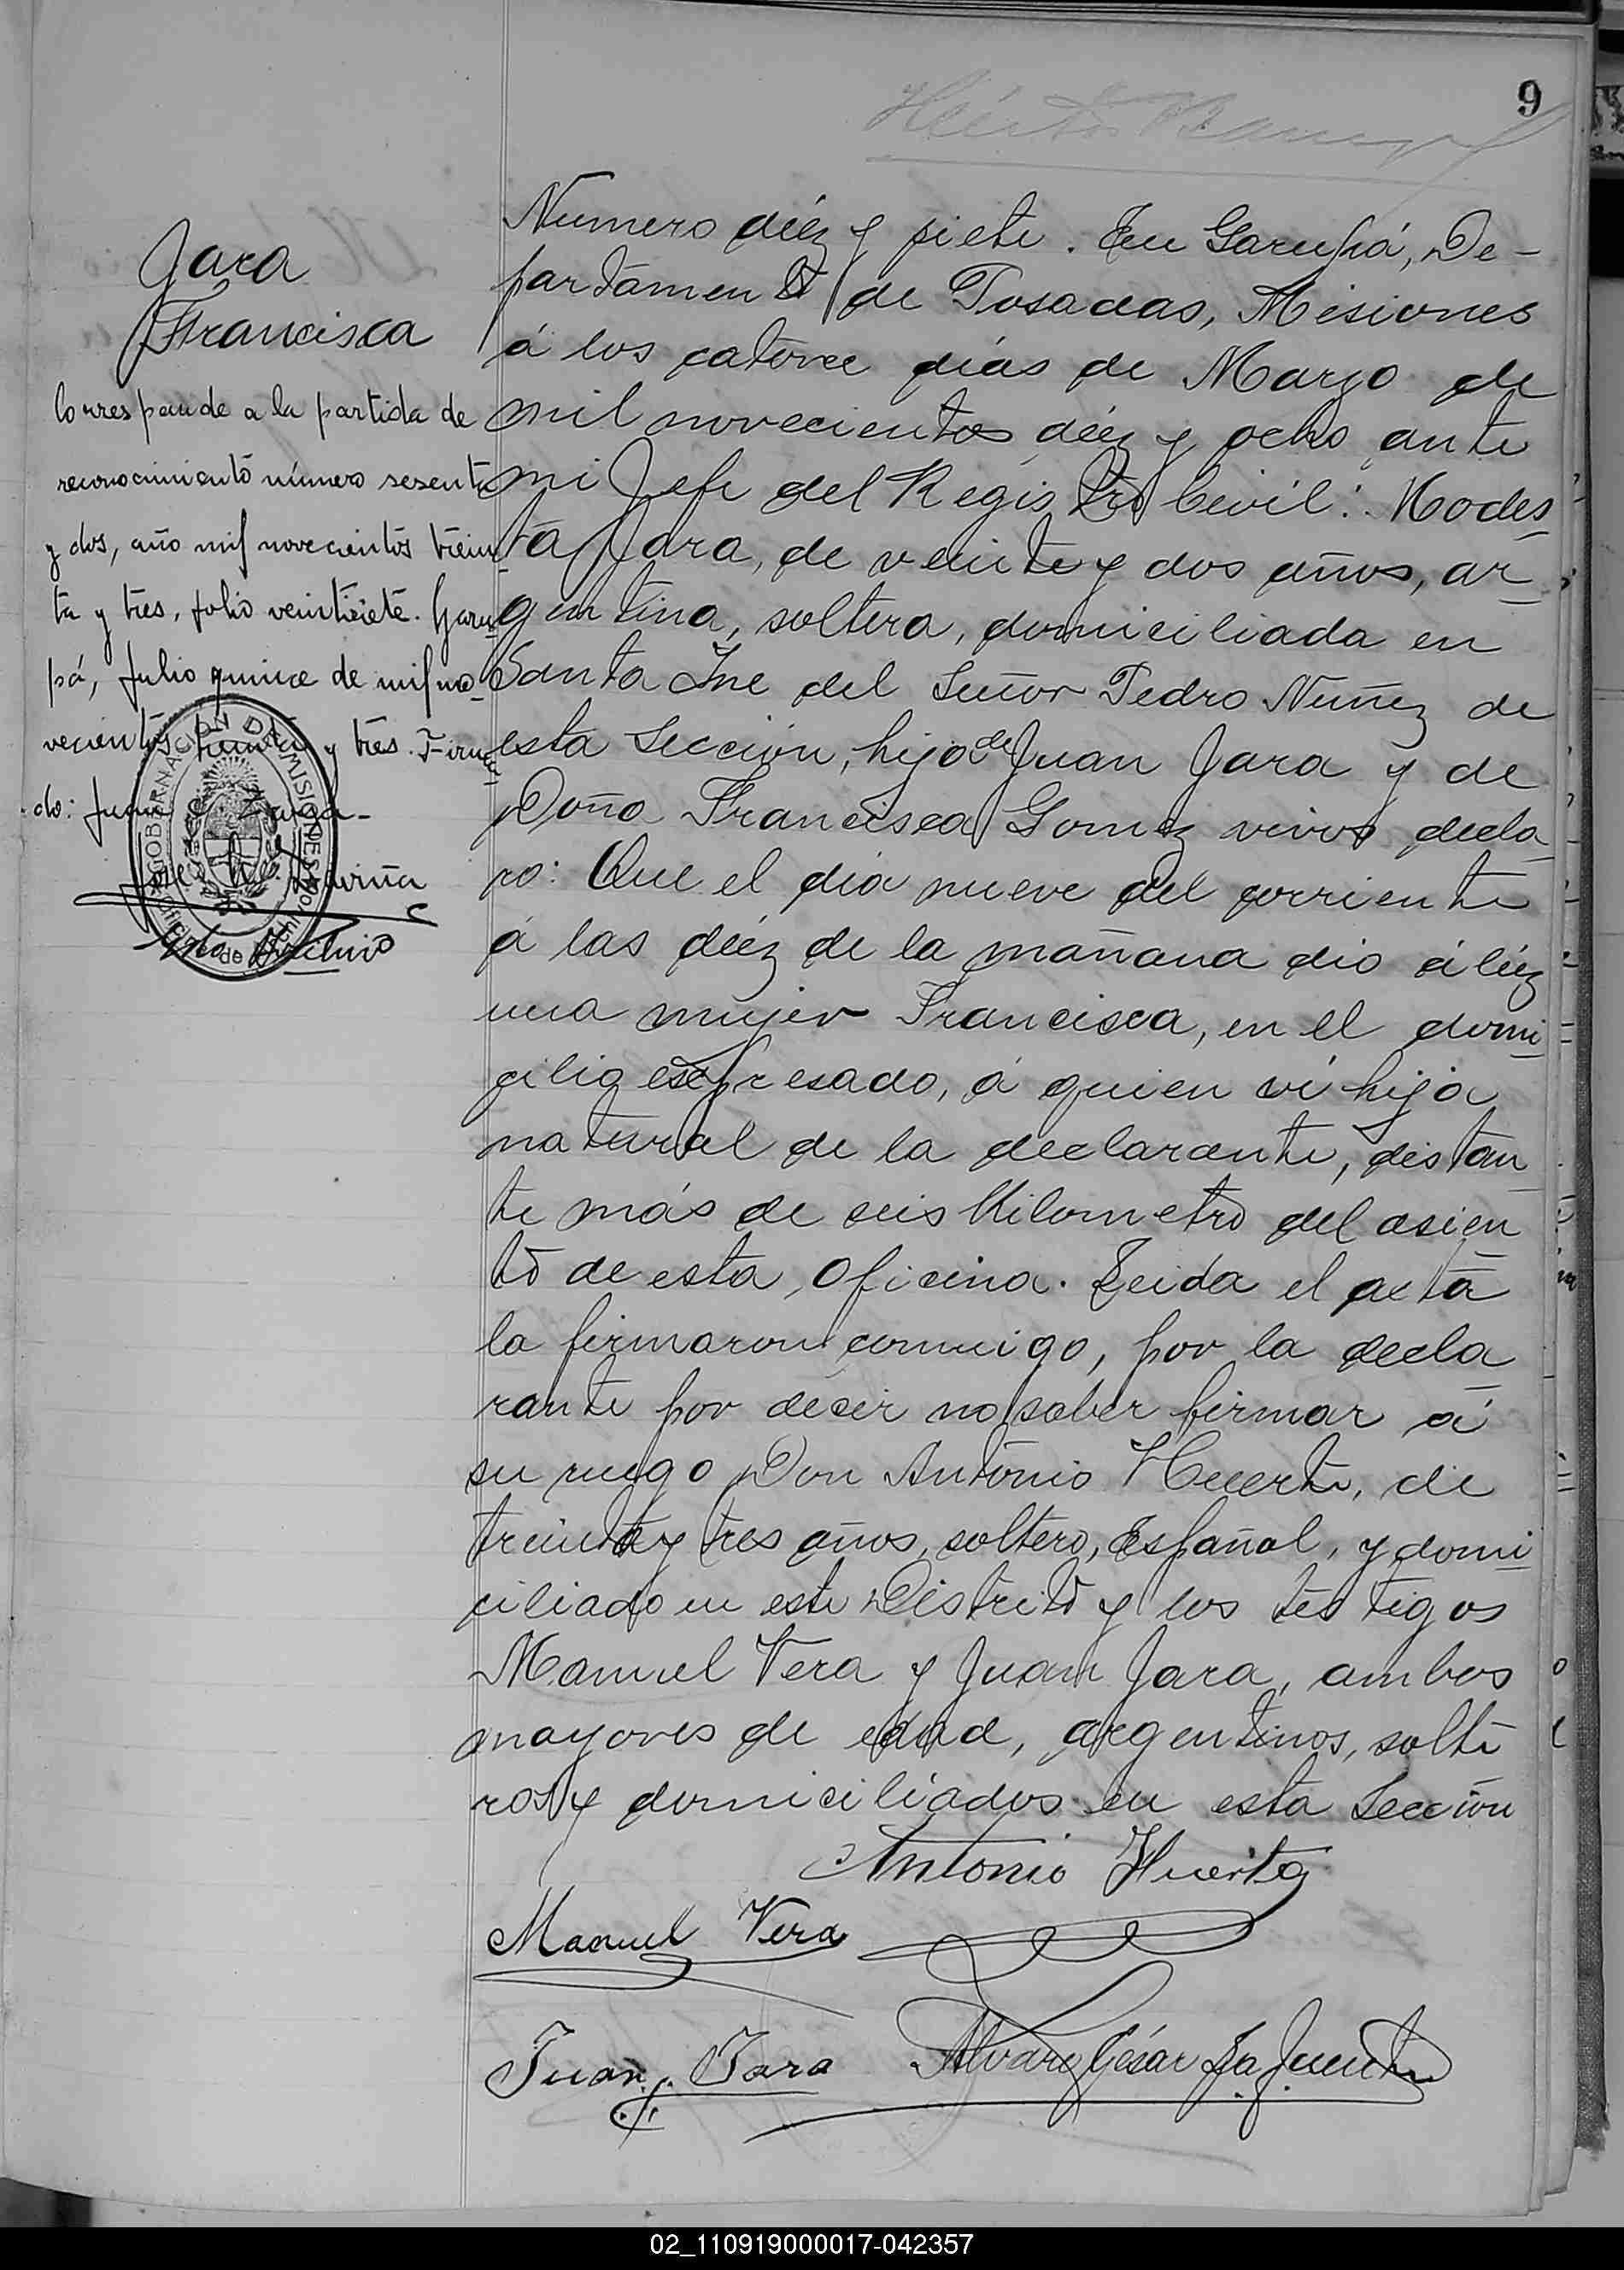 9
Jara
Francisca
Corresponde a la partida de
reconocimiento número sesenta
y dos, año mil novecientos trein
ta y tres, folio veintisiete. Garu
pá, Julio quince de mil no-
vecientos treinta y tres. Firma
do: Juan
Archivo
GOBERNACION DE MISIONES
Numero diéz y siete. En Garupá, De-
partamento de Posadas, Misiones
á los catorce días de Marzo de
mil novecientos diéz y ocho ante
mi Jefe del Registro Civil: Modes
ta Jara, de veinte y dos años, ar
gentina, soltera, domiciliada en
Santa Ine del Señor Pedro Nuñez de
esta Sección, hija de Juan Jara y de
Doña Francisca Gomez vivos decla
ro: Que el día nueve del corriente
á las diéz de la mañana dio á lúz
una mujer Francisca, en el domi
cilio espresado, á quien ví hija
natural de la declarante, distan
te más de seis Kilometro del asien
to de esta Oficina. Leida el acta
la firmaron conmigo, por la decla
rante por decir no saber firmar á
su ruego Don Antonio Huerta, de
treinta y tres años, soltero, Español, y domi
ciliado en este Distrito y los testigos
Manuel Vera y Juan Jara, ambos
mayores de edad, argentinos, solte
ros y domiciliados en esta Sección
Antonio Huerta
Manuel Vera
Juan Jara Alvaro César La Fuente
02_110919000017-042357